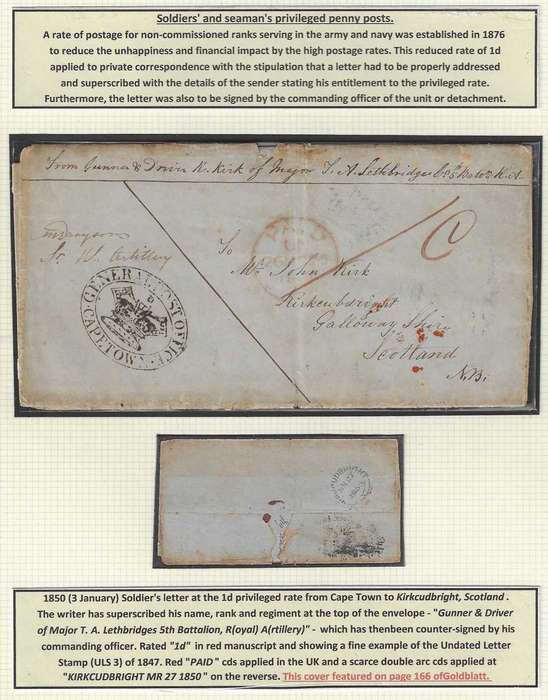 Soldiers' and seaman's privileged penny posts.
A rate of postage for non-commissioned ranks serving in the army and navy was established in 1876
to reduce the unhappiness and financial impact by the high postage rates. This reduced rate of 1d
applied to private correspondence with the stipulation that a letter had to be properly addressed
and superscribed with the details of the sender stating his entitlement to the privileged rate.
Furthermore, the letter was also to be signed by the commanding officer of the unit or detachment.
From Gunner & Driver K. Kirk of Major T. A. Lethbridges Co 5 Batn R. A
Artillery
GENERAL POST OFFICE
CAPE TOWN
PAID
To
Mr John Kirk
Kirkcudbright
Galloway Shire
Scotland
N.B.
KIRKCUDBRIGHT
1850 (3 January) Soldier's letter at the 1d privileged rate from Cape Town to Kirkcudbright, Scotland.
The writer has superscribed his name, rank and regiment at the top of the envelope - "Gunner & Driver
of Major T. A. Lethbridges 5th Battalion, R(oyal) A(rtillery)" - which has thenbeen counter-signed by his
commanding officer. Rated "1d" in red manuscript and showing a fine example of the Undated Letter
Stamp (ULS 3) of 1847. Red "PAID" cds applied in the UK and a scarce double arc cds applied at
"KIRKCUDBRIGHT MR 27 1850" on the reverse. This cover featured on page 166 ofGoldblatt.